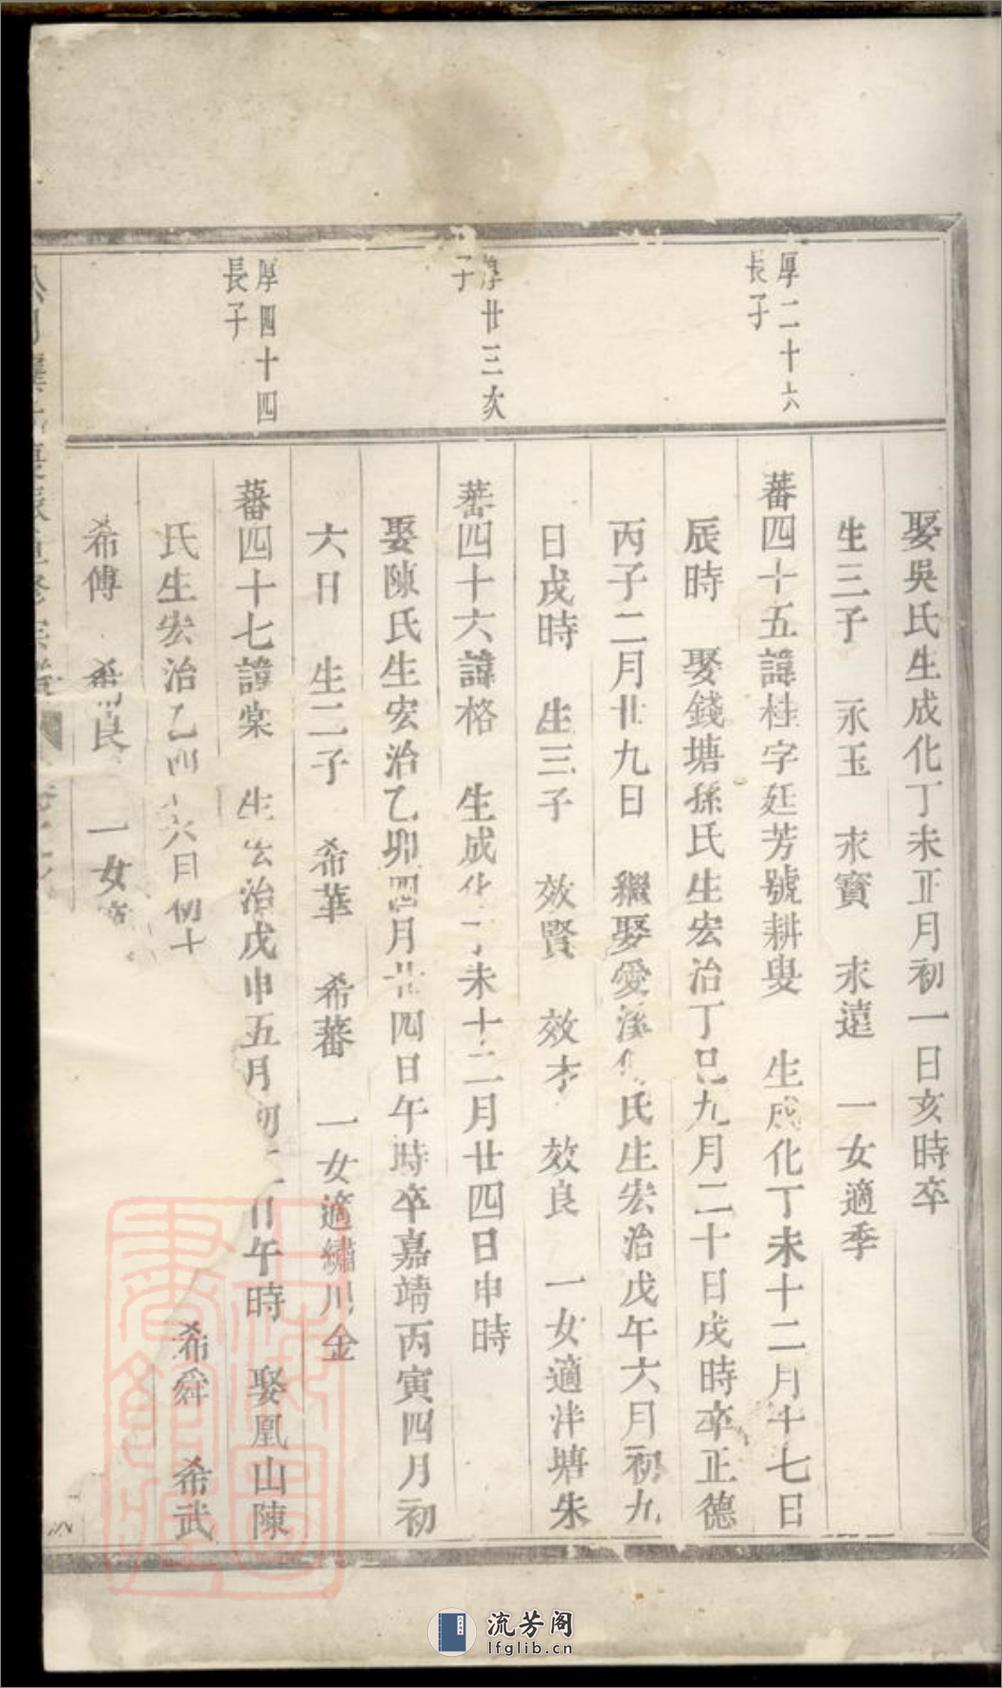 厚二十六
長子
厚廿三次
子
厚四十四
長子
娶吳氏生成化丁未正月初一日亥時卒
生三子　永玉　永寳　永遠　一女適季
蕃四十五諱桂字廷芳號耕叟　生成化丁未十二月十七日
辰時　娶錢塘孫氏生宏治丁巳九月二十日戌時卒正德
丙子二月廿九日　繼娶愛溪氏生宏治戊午六月初九
日戌時　生三子　效賢　效才　效良　一女適泮塘朱
蕃四十六諱格　生成化丁未十二月廿四日申時
娶陳氏生宏治乙卯四月廿四日午時卒嘉靖丙寅四月初
六日　生二子　希華　希蕃　一女適繡川金
蕃四十七諱棠　生宏治戊申五月初日午時　娶凰山陳
氏生宏治乙六日　希舜　希武
希傅　希良　一女
流芳阁
lfglib.cn